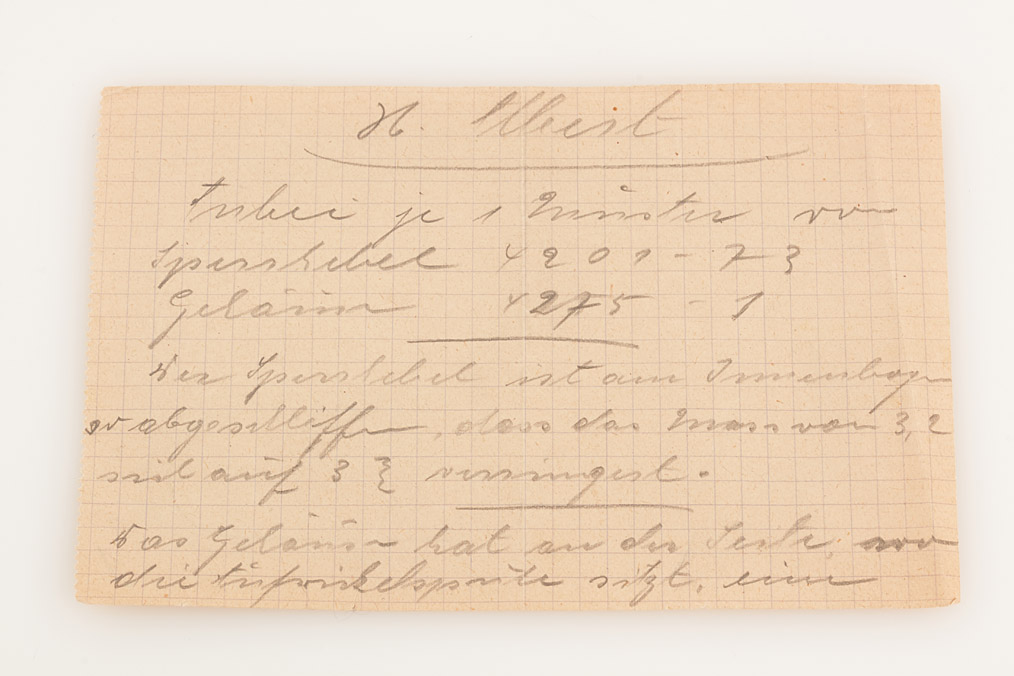 H. Albert
Anbei je 1 Muster von
Sperrhebel 4201-73
Gehäuse 4275-1
Der Sperrhebel ist am Innenbogen
so abgeschliffen, dass das Mass von 3,2
sich auf 3 verringert.
Das Gehäuse hat an der Seite, wo
die Aufwickelspule sitzt, eine